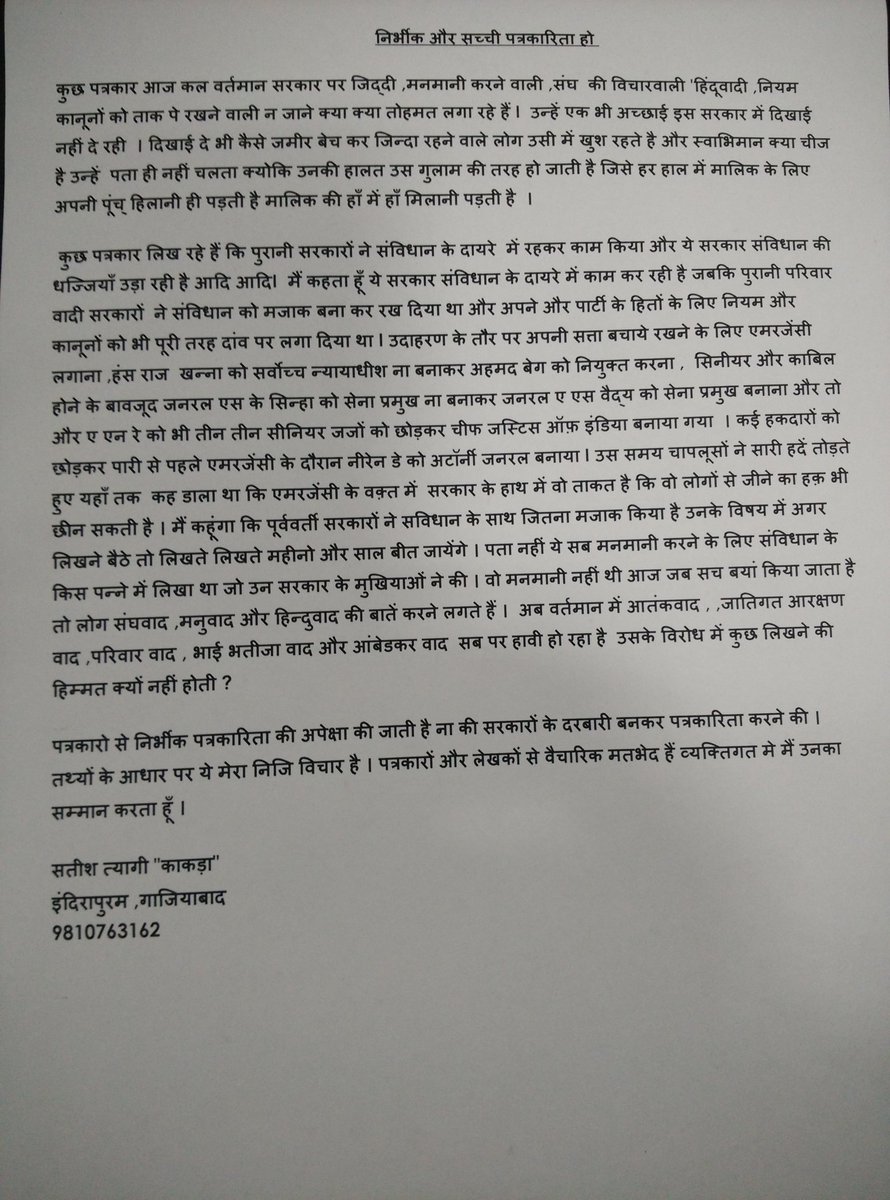 निर्भीक और सच्ची पत्रकारिता हो
कुछ पत्रकार आज कल वर्तमान सरकार पर जिद्दी ,मनमानी करने वाली ,संघ की विचारवाली 'हिंदूवादी ,नियम
कानूनों को ताक पे रखने वाली न जाने क्या क्या तोहमत लगा रहे हैं । उन्हें एक भी अच्छाई इस सरकार में दिखाई
नहीं दे रही । दिखाई दे भी कैसे जमीर बेच कर जिन्दा रहने वाले लोग उसी में खुश रहते है और स्वाभिमान क्या चीज
है उन्हें पता ही नहीं चलता क्योकि उनकी हालत उस गुलाम की तरह हो जाती है जिसे हर हाल में मालिक के लिए
अपनी पूंच् हिलानी ही पड़ती है मालिक की हाँ में हाँ मिलानी पड़ती है ।
कुछ पत्रकार लिख रहे हैं कि पुरानी सरकारों ने संविधान के दायरे में रहकर काम किया और ये सरकार संविधान की
धज्जियाँ उड़ा रही है आदि आदि। मैं कहता हूँ ये सरकार संविधान के दायरे में काम कर रही है जबकि पुरानी परिवार
वादी सरकारों ने संविधान को मजाक बना कर रख दिया था और अपने और पार्टी के हितों के लिए नियम और
कानूनों को भी पूरी तरह दांव पर लगा दिया था । उदाहरण के तौर पर अपनी सत्ता बचाये रखने के लिए एमरजेंसी
लगाना ,हंस राज खन्ना को सर्वोच्च न्यायाधीश ना बनाकर अहमद बेग को नियुक्त करना , सिनीयर और काबिल
होने के बावजूद जनरल एस के सिन्हा को सेना प्रमुख ना बनाकर जनरल ए एस वैद्य को सेना प्रमुख बनाना और तो
और ए एन रे को भी तीन तीन सीनियर जजों को छोड़कर चीफ जस्टिस ऑफ़ इंडिया बनाया गया । कई हकदारों को
छोड़कर पारी से पहले एमरजेंसी के दौरान नीरेन डे को अटॉर्नी जनरल बनाया । उस समय चापलूसों ने सारी हदें तोड़ते
हुए यहाँ तक कह डाला था कि एमरजेंसी के वक़्त में सरकार के हाथ में वो ताकत है कि वो लोगों से जीने का हक़ भी
छीन सकती है । मैं कहूंगा कि पूर्ववर्ती सरकारों ने सविधान के साथ जितना मजाक किया है उनके विषय में अगर
लिखने बैठे तो लिखते लिखते महीनो और साल बीत जायेंगे । पता नहीं ये सब मनमानी करने के लिए संविधान के
किस पन्ने में लिखा था जो उन सरकार के मुखियाओं ने की । वो मनमानी नहीं थी आज जब सच बयां किया जाता है
तो लोग संघवाद ,मनुवाद और हिन्दुवाद की बातें करने लगते हैं । अब वर्तमान में आतंकवाद , ,जातिगत आरक्षण
वाद ,परिवार वाद , भाई भतीजा वाद और आंबेडकर वाद सब पर हावी हो रहा है उसके विरोध में कुछ लिखने की
हिम्मत क्यों नहीं होती ?
पत्रकारो से निर्भीक पत्रकारिता की अपेक्षा की जाती है ना की सरकारों के दरबारी बनकर पत्रकारिता करने की ।
तथ्यों के आधार पर ये मेरा निजि विचार है । पत्रकारों और लेखकों से वैचारिक मतभेद हैं व्यक्तिगत मे मैं उनका
सम्मान करता हूँ ।
सतीश त्यागी "काकड़ा"
इंदिरापुरम ,गाजियाबाद
9810763162